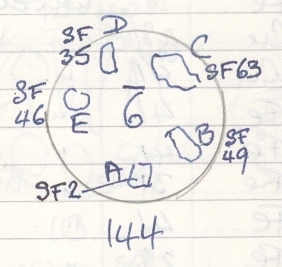 D
SF
35
C
SF63
SF
46
E
6
B
SF
49
A
SF2
144